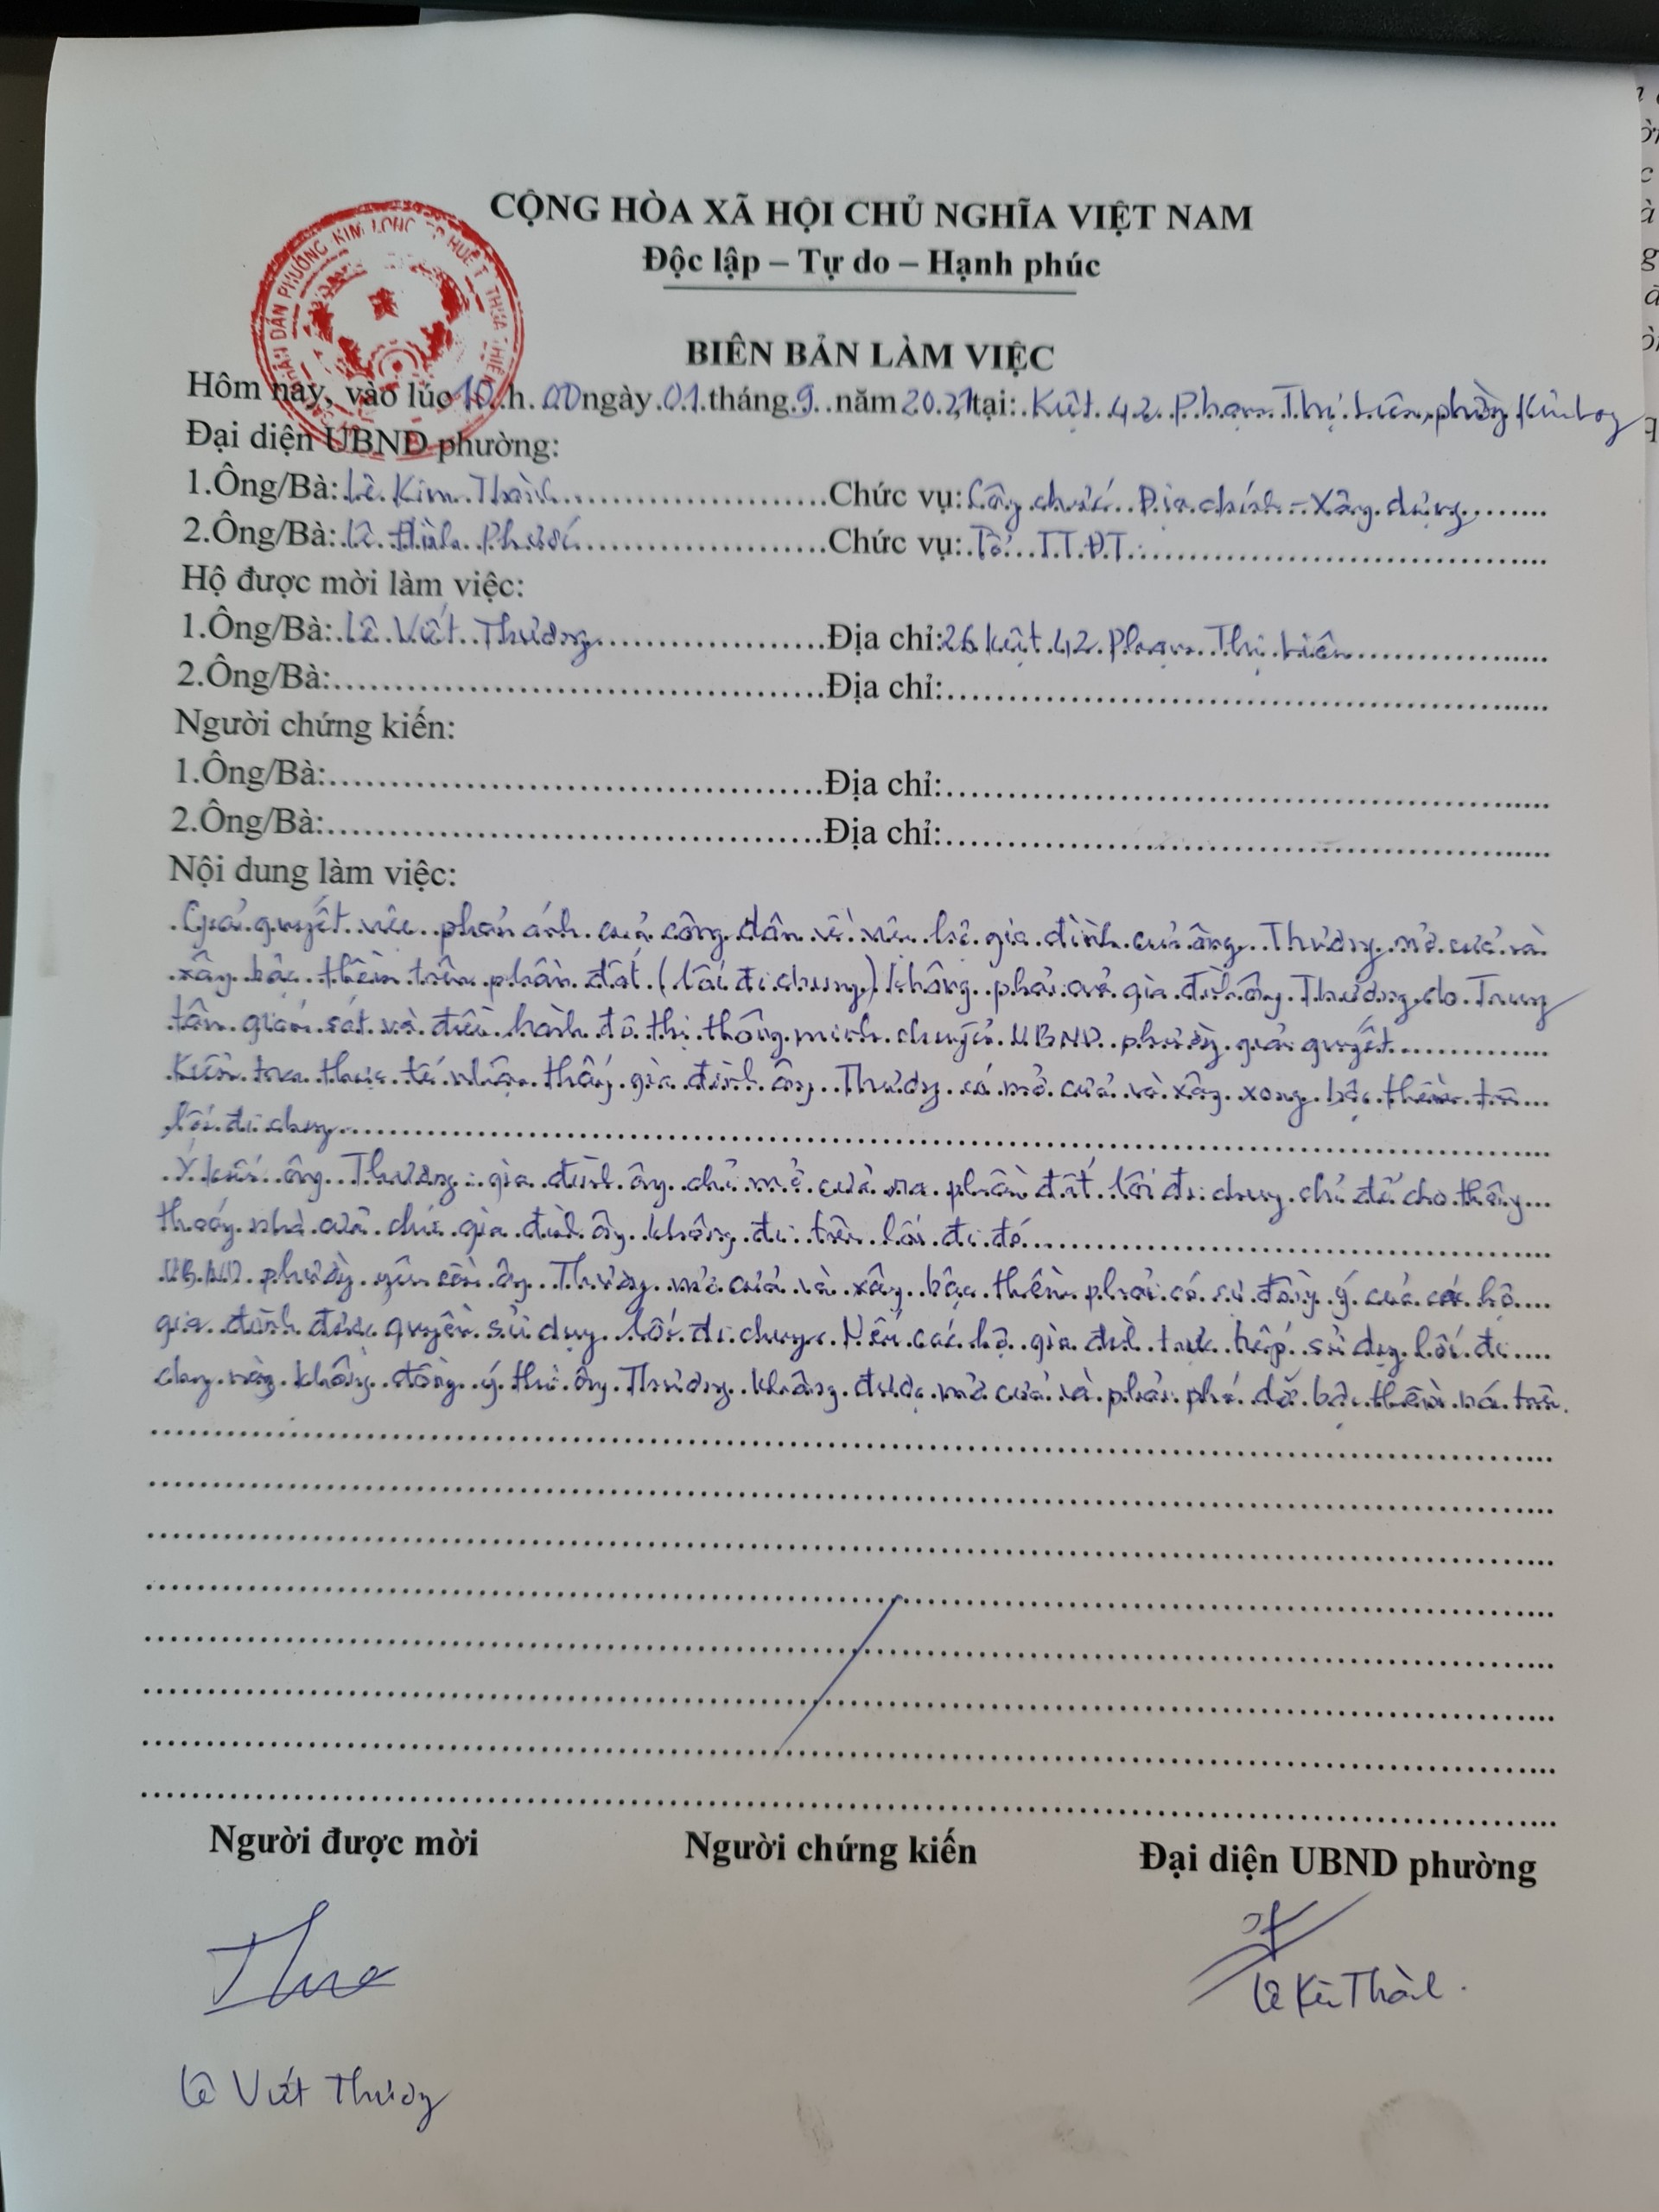 CỘNG HÒA XÃ HỘI CHỦ NGHĨA VIỆT NAM
Độc lập – Tự do – Hạnh phúc
NHÂN DÂN PHƯỜNG KIM LONG TP HUẾ T THỪA THIÊN
BIÊN BẢN LÀM VIỆC
Hôm nay, vào lúc 10 h 00 ngày 01 tháng 9 năm 2021 tại: Kiệt 42 Phạm Thị Liên, phường Kim Long
Đại diện UBND phường:
1.Ông/Bà: Lê Kim Thành Chức vụ: Công chức Địa chính - Xây dựng
2.Ông/Bà: Lê Đình Phước Chức vụ: Tổ TTĐT
Hộ được mời làm việc:
1.Ông/Bà: Lê Viết Thương Địa chỉ: 26 kiệt 42 Phạm Thị Liên
2.Ông/Bà: Địa chỉ:
Người chứng kiến:
1.Ông/Bà: Địa chỉ:
2.Ông/Bà: Địa chỉ:
Nội dung làm việc:
Giải quyết việc phản ánh của công dân về việc hộ gia đình của ông Thương mở cửa và
xây bậc thềm trên phần đất (lối đi chung) không phải của gia đình ông Thương do Trung
tâm giám sát và điều hành đô thị thông minh chuyển UBND phường giải quyết
Kiểm tra thực tế nhận thấy gia đình ông Thương có mở cửa và xây xong bậc thềm trên
lối đi chung
Ý kiến ông Thương: gia đình ông chỉ mở cửa ra phần đất lối đi chung chỉ để cho thông
thoáng nhà cửa chứ gia đình ông không đi trên lối đi đó
UBND phường yêu cầu ông Thương mở cửa và xây bậc thềm phải có sự đồng ý của các hộ
gia đình được quyền sử dụng lối đi chung. Nếu các hộ gia đình trực tiếp sử dụng lối đi
chung này không đồng ý thì ông Thương không được mở cửa và phải phá dỡ bậc thềm nói trên.
Người được mời Người chứng kiến Đại diện UBND phường
Lê Kim Thành
Lê Viết Thương